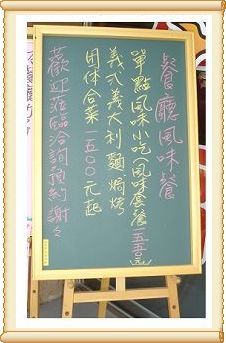 餐廳風味餐
單點風味小吃(風味套餐一五〇元)
義式義大利麵焗烤
团体合菜一五〇〇元起
歡迎蒞臨洽詢預約謝々